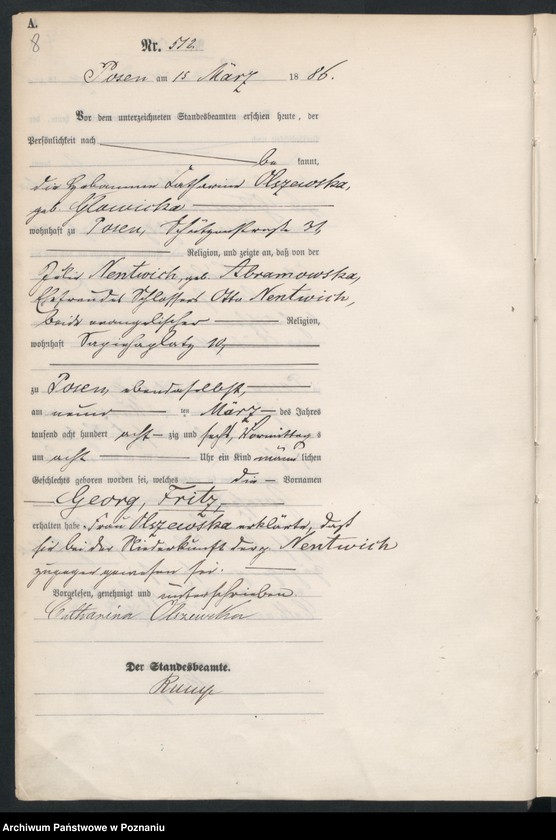 A.
8
Nr. 512.
Posen am 15 März 1886.
Vor dem unterzeichneten Standesbeamten erschien heute, der
Persönlichkeit nach
be kannt,
die Hebamme Catharina Olszewska,
geb. Glowicka
wohnhaft zu Posen, Schützenstraße 31,
Religion, und zeigte an, daß von der
Julie Nentwich, geb. Abramowska,
Ehefrau des Schlossers Otto Nentwich,
beide evangelischer Religion,
wohnhaft Sapiehaplatz 10,
zu Posen, ebendaselbst,
am neun ten März des Jahres
tausend acht hundert acht zig und sechs, Vormittag s
um acht Uhr ein Kind männ lichen
Geschlechts geboren worden sei, welches die Vornamen
Georg, Fritz,
erhalten habe. Frau Olszewska erklärte, daß
sie bei der Niederkunft der p Nentwich
zugegen gewesen sei.
Vorgelesen, genehmigt und unterschrieben
Catharina Olszewska
Der Standesbeamte.
Rump
Archiwum Państwowe w Poznaniu